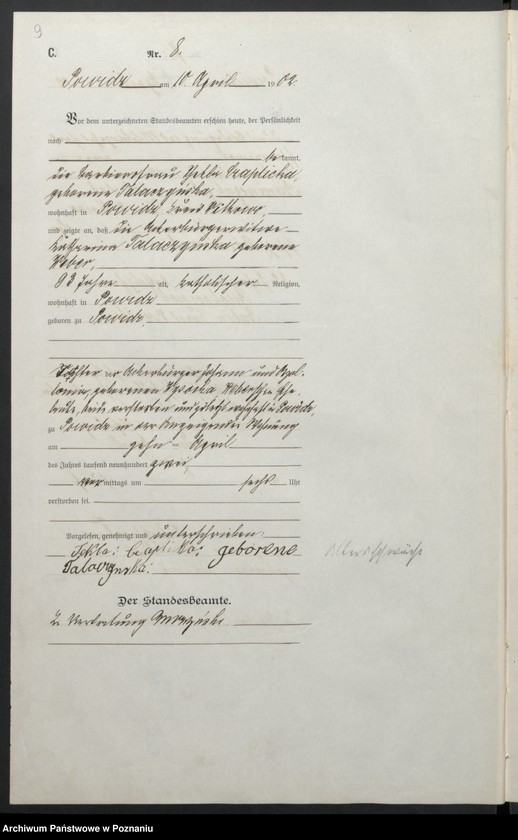 9
C.
Nr. 8.
Powidz am 10. April 1902.
Vor dem unterzeichneten Standesbeamten erschien heute, der Persönlichkeit
nach
be kannt,
die Barbiersfrau Thekla Czaplicka
geborene Talaczynska,
wohnhaft in Powidz, Kreis Witkowo,
und zeigte an, daß die Ackerbürgerwitwe
Katharina Talaczynska geborene
Weber,
83 Jahre alt, katholischer Religion,
wohnhaft in Powidz
geboren zu Powidz,
Tochter der Ackerbürger Johann und Apol-
lonia, geborenen Weberschen Ehe-
leute, beide verstorben und zuletzt wohnhaft in Powidz,
zu Powidz in der Anzeigenden Wohnung
am zehn April
des Jahres tausend neunhundert zwei,
Vor mittags um sechs Uhr
verstorben sei.
Vorgelesen, genehmigt und unterschrieben.
Tekla: Czaplicka: geborene
Talaczynska:
Der Standesbeamte.
In Vertretung
Altersschwäche
Archiwum Państwowe w Poznaniu